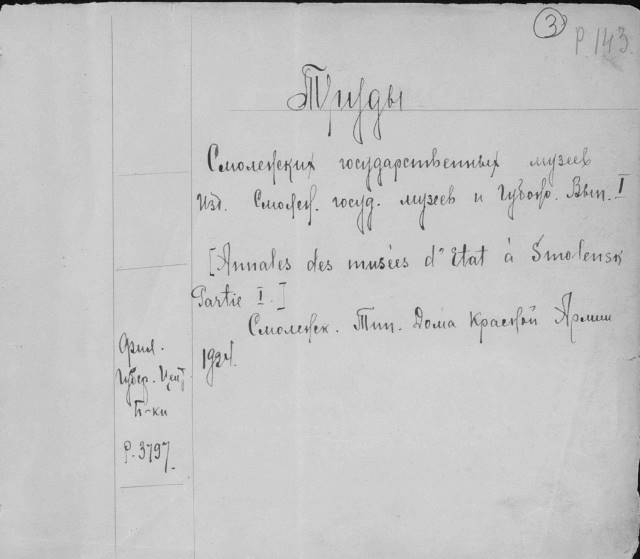 3
Р. 143.
Труды
Смоленских государственных музеев
Изд. Смолен. госуд. музеев и Губоно. Вып. I
[Annales des musées d'Etat à Smolensk
Partie I.]
Смоленск. Тип. Дома Красной Армии
1924.
Фил.
Губер. Цент.
Б-ки
Р. 3797.